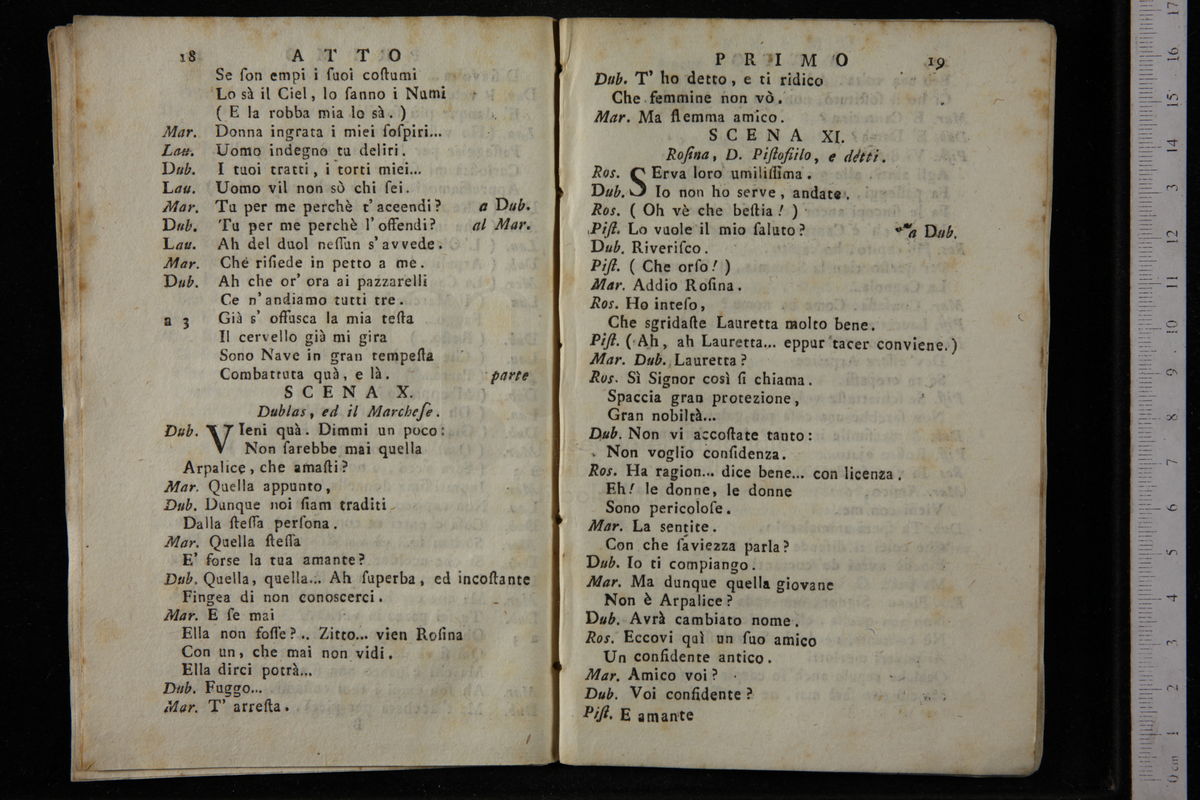 18 ATTO
Se ſon empi i ſuoi coſtumi
Lo sà il Ciel, lo ſanno i Numi
( E la robba mia lo sà. )
Mar. Donna ingrata i miei ſoſpiri...
Lau. Uomo indegno tu deliri.
Dub. I tuoi tratti, i torti miei...
Lau. Uomo vil non sò chi ſei.
Mar. Tu per me perchè t'aceendi? a Dub.
Dub. Tu per me perchè l'offendi? al Mar.
Lau. Ah del duol neſſun s'avvede.
Mar. Che riſiede in petto a me.
Dub. Ah che or' ora ai pazzarelli
Ce n'andiamo tutti tre.
a 3 Già s' offuſca la mia teſta
Il cervello già mi gira
Sono Nave in gran tempeſta
Combattuta quà, e là. parte
SCENA X.
Dublas, ed il Marcheſe.
Dub. VIeni quà. Dimmi un poco:
Non ſarebbe mai quella
Arpalice, che amaſti?
Mar. Quella appunto,
Dub. Dunque noi ſiam traditi
Dalla ſteſſa perſona.
Mar. Quella ſteſſa
E' forse la tua amante?
Dub. Quella, quella... Ah ſuperba, ed incoſtante
Fingea di non conoscerci.
Mar. E ſe mai
Ella non foſſe?.. Zitto... vien Roſina
Con un, che mai non vidi.
Ella dirci potrà...
Dub. Fuggo...
Mar. T' arreſta.
PRIMO 19
Dub. T' ho detto, e ti ridico
Che femmine non vò.
Mar. Ma flemma amico.
SCENA XI.
Roſina, D. Piſtofiilo, e detti.
Ros. SErva loro umiliſſima.
Dub. Io non ho serve, andate.
Ros. ( Oh vè che beſtia! )
Piſt. Lo vuole il mio ſaluto? a Dub.
Dub. Riveriſco.
Piſt. ( Che orſo! )
Mar. Addio Roſina.
Ros. Ho inteſo,
Che sgridaſte Lauretta molto bene.
Piſt. ( Ah, ah Lauretta... eppur tacer conviene. )
Mar. Dub. Lauretta?
Ros. Sì Signor così ſi chiama.
Spaccia gran protezione,
Gran nobiltà...
Dub. Non vi accoſtate tanto:
Non voglio confidenza.
Ros. Ha ragion... dice bene... con licenza.
Eh! le donne, le donne
Sono pericoloſe.
Mar. La sentite.
Con che ſaviezza parla?
Dub. Io ti compiango.
Mar. Ma dunque quella giovane
Non è Arpalice?
Dub. Avrà cambiato nome.
Ros. Eccovi quì un ſuo amico
Un confidente antico.
Mar. Amico voi?
Dub. Voi confidente?
Piſt. E amante
0 cm 1 2 3 4 5 6 7 8 9 10 11 12 13 14 15 16 17